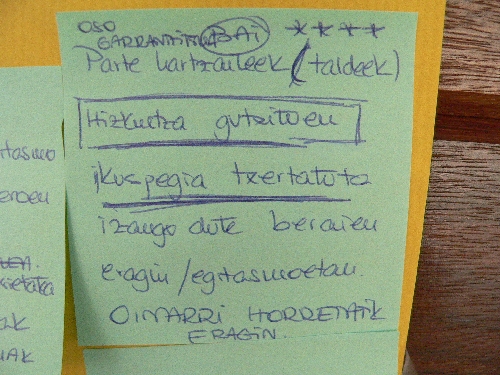 OSO
GARRANTITSUA BAI ****
Parte hartzaileek (taldeek)
Hizkuntza gutxituen
ikuspegia txertatuta
izango dute beraien
eragin/egitasmoetan.
OINARRI HORRETATIK
ERAGIN.